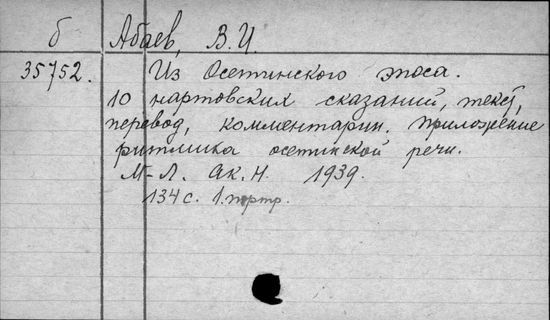 б Абаев, В.И.
35752. Из Осетинского эпоса.
10 нартовских сказаний, текст,
перевод, комментарии. приложение
ритмика осетинской речи.
М-Л. Ак.Н. 1939.
134 с. 1.портр.